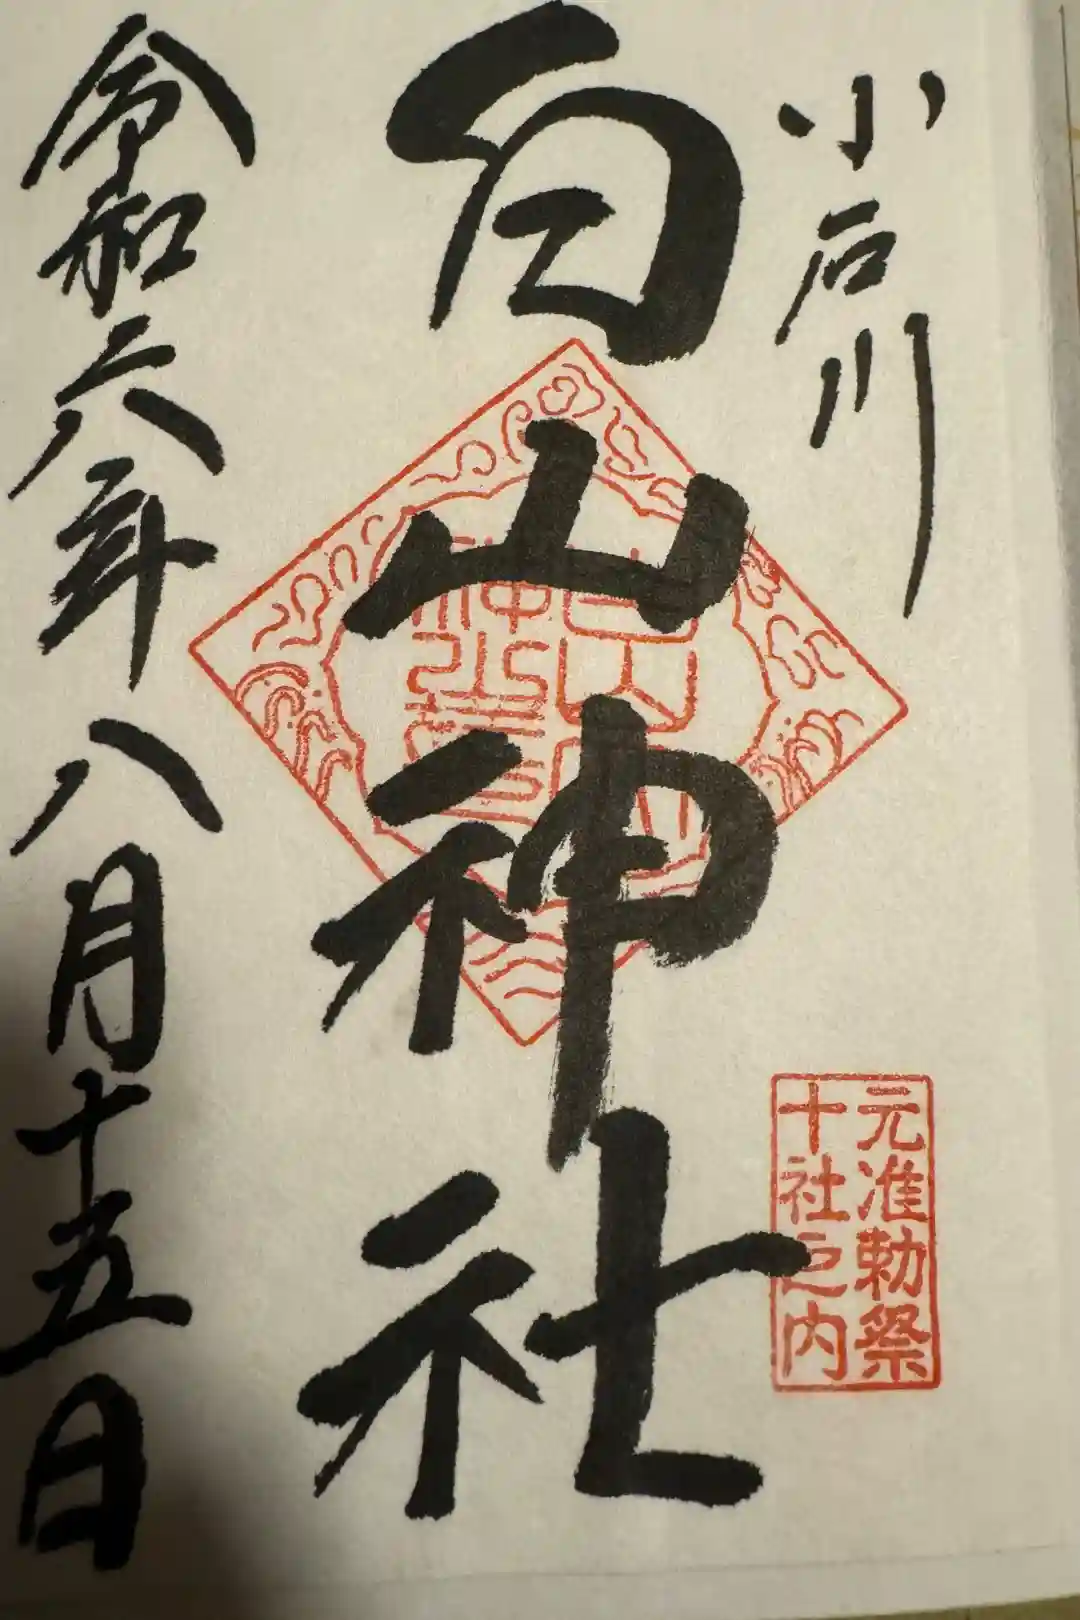 小石川
元准勅祭
十社之内
白山神社
令和六年八月十五日